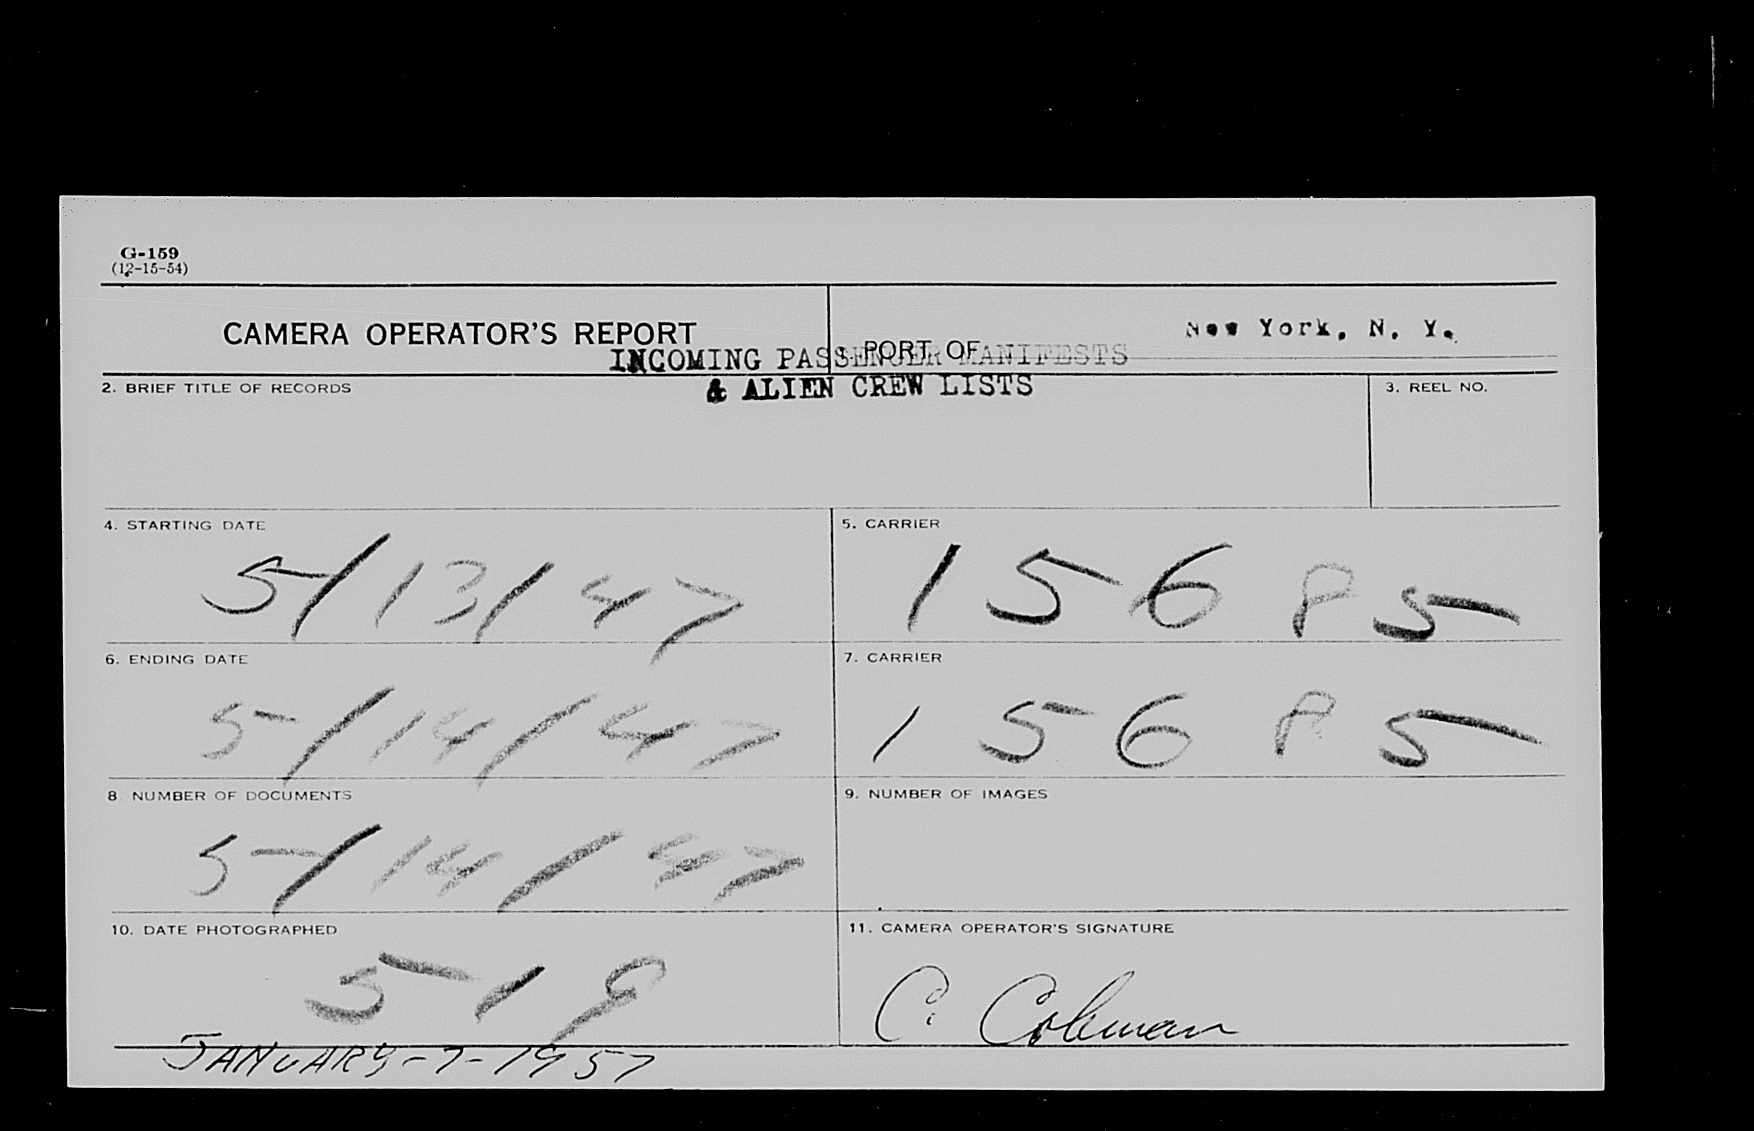 G-159
(12-15-54)
CAMERA OPERATOR'S REPORT
1. PORT OF
New York, N. Y.
INCOMING PASSENGER MANIFESTS
& ALIEN CREW LISTS
2. BRIEF TITLE OF RECORDS
3. REEL NO.
4. STARTING DATE
5/13/47
5. CARRIER
15685
6. ENDING DATE
5/14/47
7. CARRIER
15685
8 NUMBER OF DOCUMENTS
5/14/47
9. NUMBER OF IMAGES
10. DATE PHOTOGRAPHED
519
JANUARY-7-1957
11. CAMERA OPERATOR'S SIGNATURE
C. Coleman